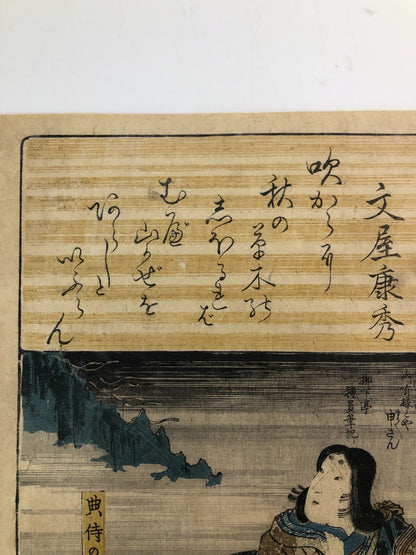 文屋康秀
吹からに
秋の
草木の
志ほるれば
むべ
山かぜを
あらしと
いふらん
柳下亭
種員筆記
申さん
典侍の